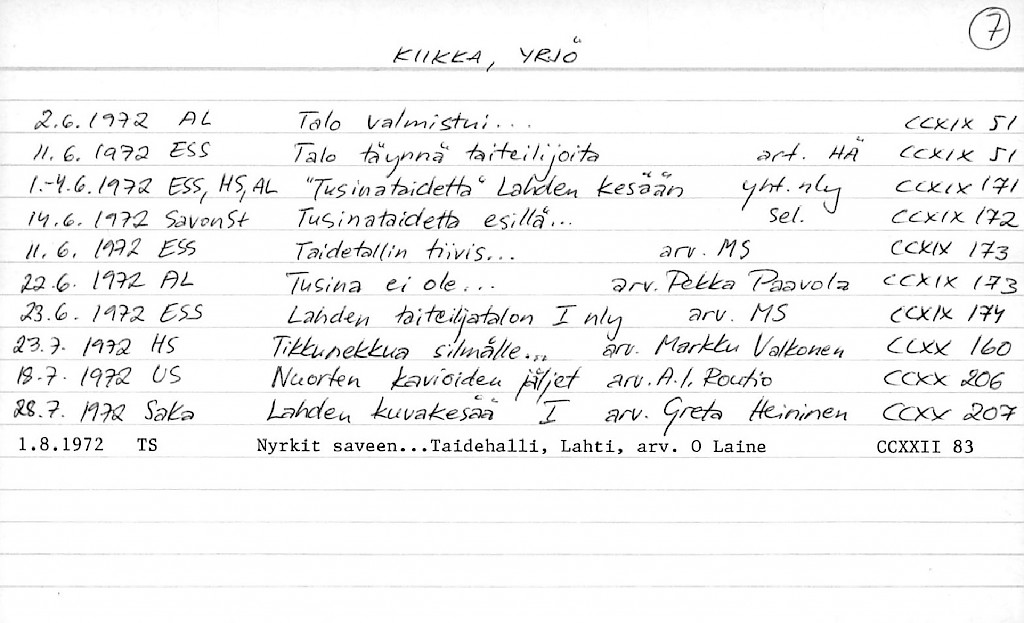 7
KIIKKA, YRJÖ
2.6.1972 AL Talo valmistui... CCXIX 51
11.6.1972 ESS Talo täynnä taiteilijoita art. HÄ CCXIX 51
1.-4.6.1972 ESS, HS, AL "Tusinataidetta" Lahden kesään yht.nly CCXIX 171
14.6.1972 SavonSt Tusinataidetta esillä... sel. CCXIX 172
11.6.1972 ESS Taidetallin tiivis... arv. MS CCXIX 173
22.6.1972 AL Tusina ei ole... arv. Pekka Paavola CCXIX 173
23.6.1972 ESS Lahden taiteilijatalon I nly arv. MS CCXIX 174
23.7.1972 HS Tikkunekkua silmälle... arv. Markku Valkonen CCXX 160
18.7.1972 US Nuorten kavioiden jäljet arv. A.I. Routio CCXX 206
28.7.1972 SaKa Lahden kuvakesää I arv. Greta Heininen CCXX 207
1.8.1972 TS Nyrkit saveen...Taidehalli, Lahti, arv. O Laine CCXXII 83